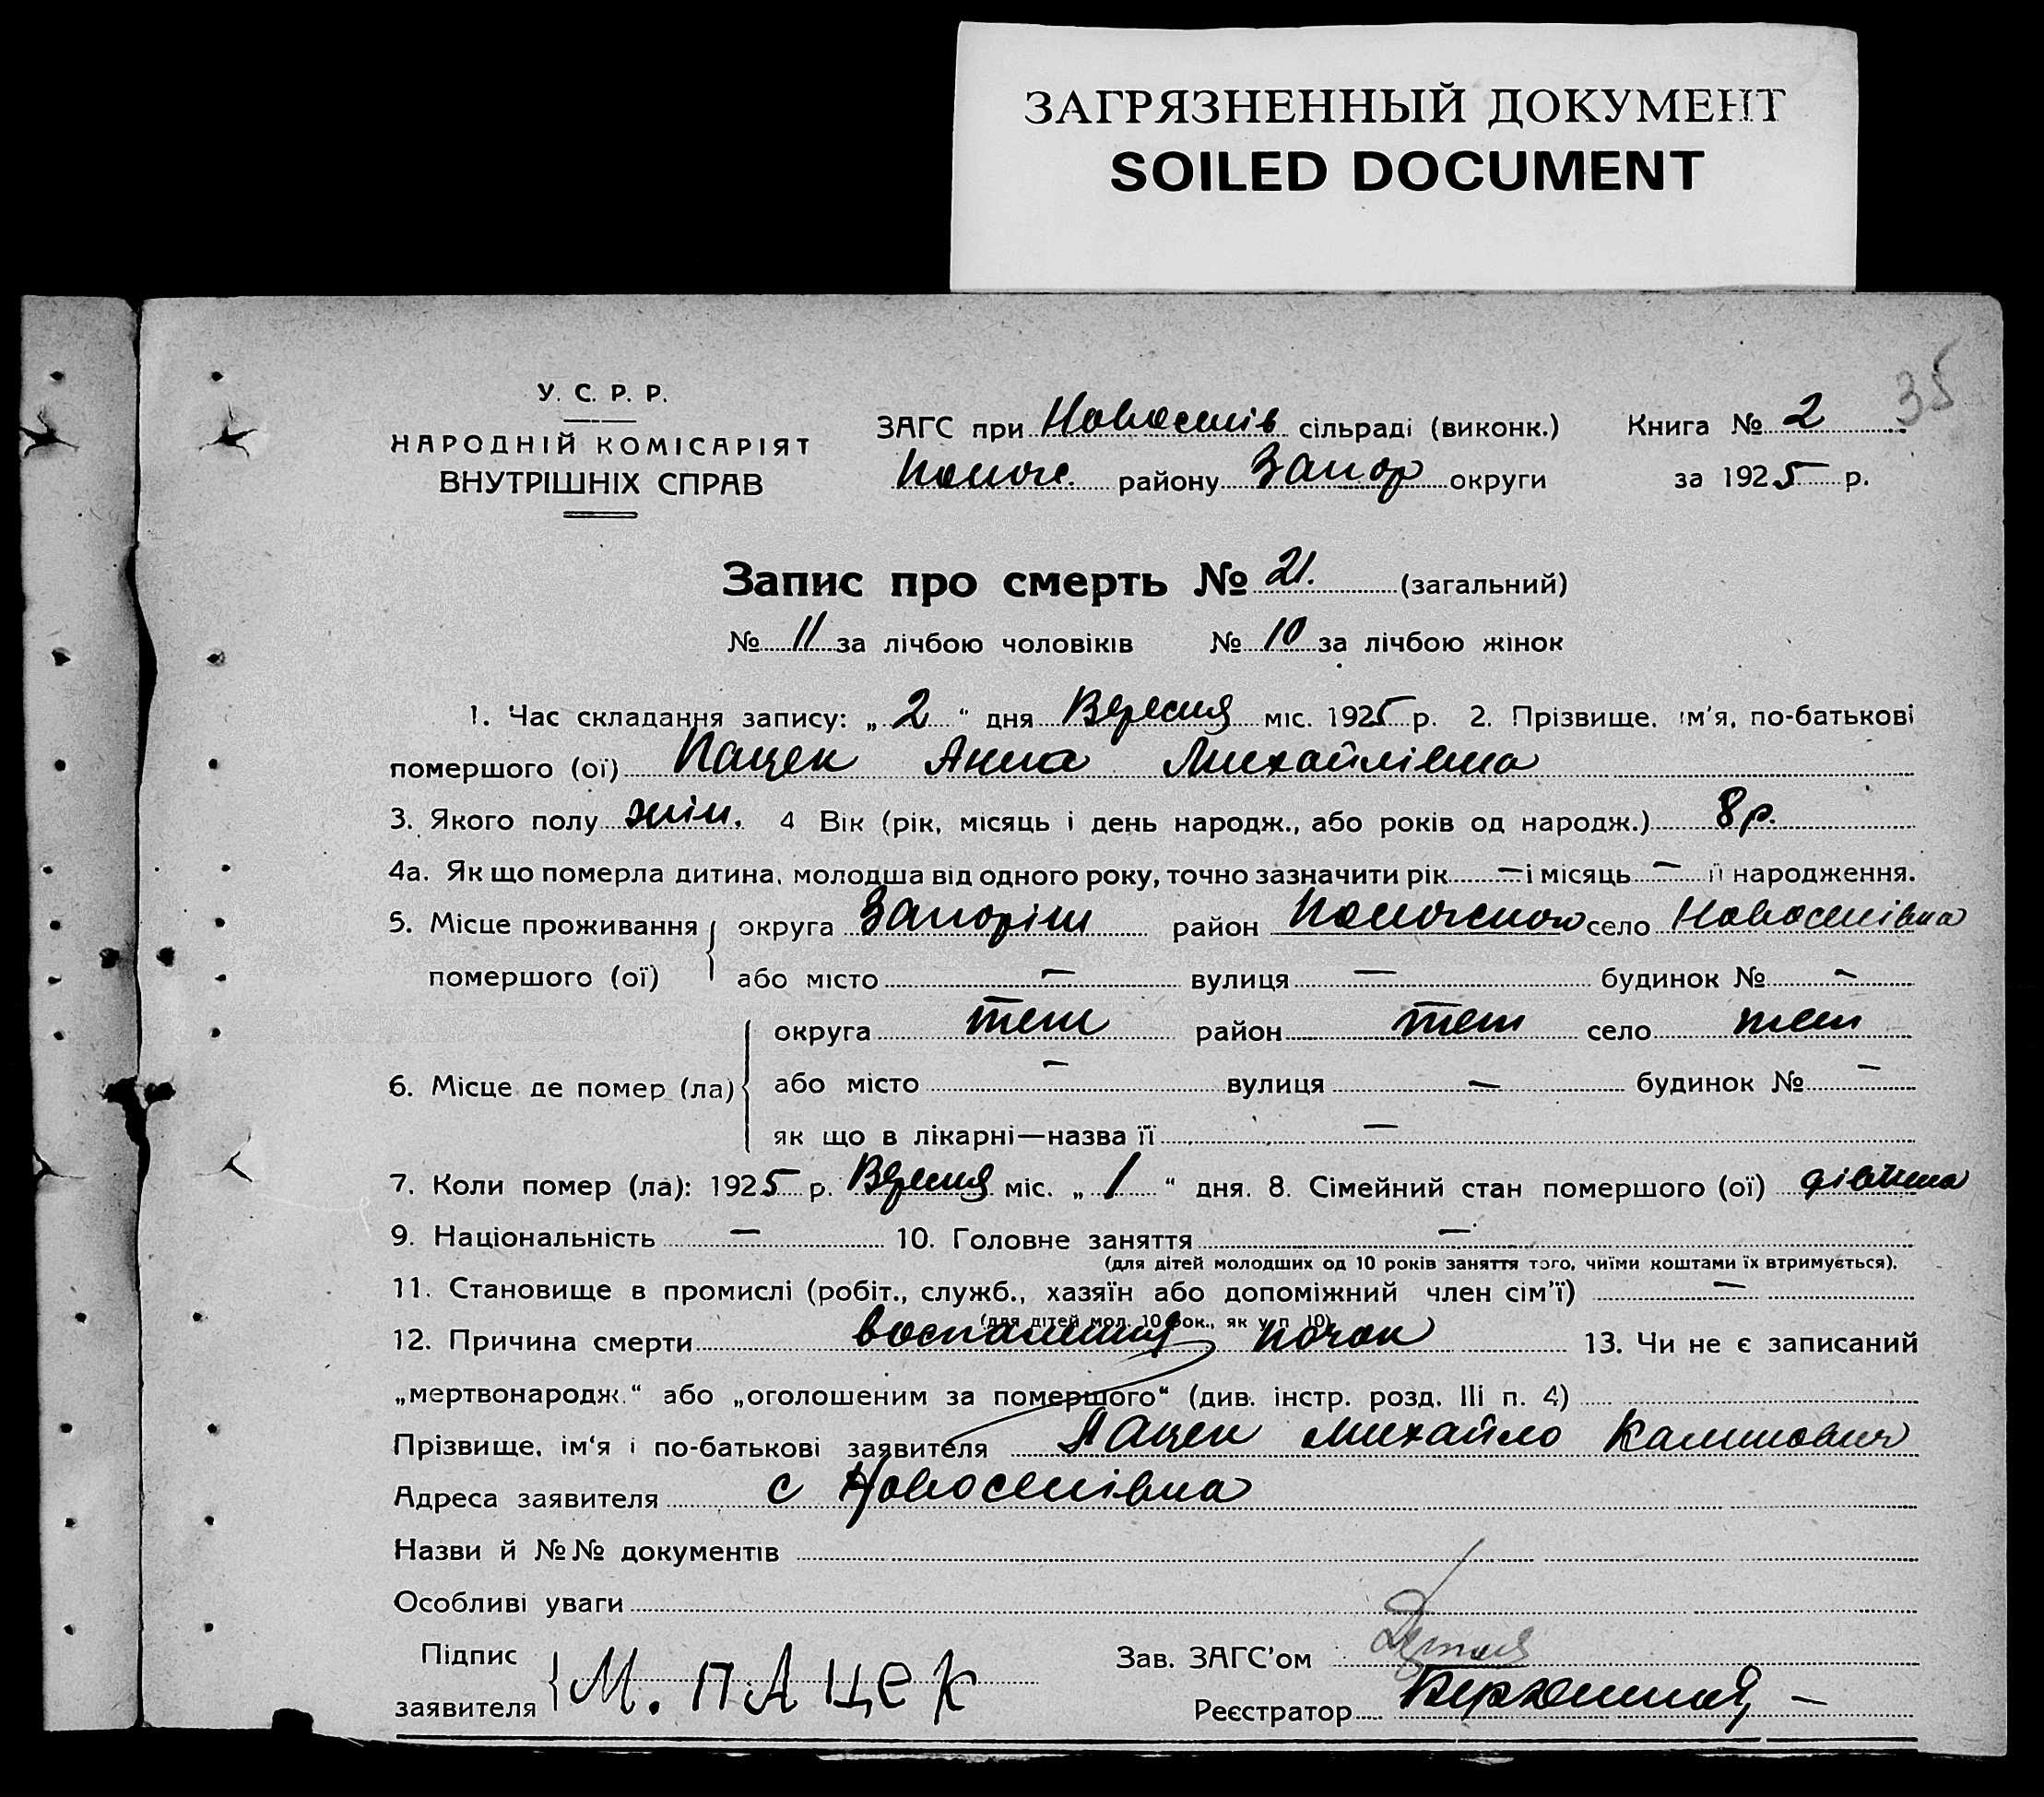 ЗАГРЯЗНЕННЫЙ ДОКУМЕНТ
SOILED DOCUMENT
35
У. С. Р. Р.
НАРОДНІЙ КОМІСАРІЯТ
ВНУТРІШНІХ СПРАВ
ЗАГС при Новоселів сільраді (виконк.) Книга № 2
району Запор округи за 1925 р.
Запис про смерть № 21. (загальний)
№ 11 за лічбою чоловіків № 10 за лічбою жінок
1. Час складання запису: „ 2 “ дня Вересня міс. 1925 р. 2. Прізвище, ім'я, по-батькові
помершого (ої) Пацек Анна Михайлівна
3. Якого полу жін. 4 Вік (рік, місяць і день народж., або років од народж.) 8 р.
4а. Як що померла дитина, молодша від одного року, точно зазначити рік — і місяць — її народження.
5. Місце проживання округа Запоріж район село Новоселівка
помершого (ої) або місто — вулиця — будинок № —
округа теж район теж село теж
6. Місце де помер (ла) або місто — вулиця — будинок № —
як що в лікарні—назва її —
7. Коли помер (ла): 1925 р. Вересня міс. „ 1 “ дня. 8. Сімейний стан помершого (ої) дівчина
9. Національність — 10. Головне заняття —
(для дітей молодших од 10 років заняття того, чиїми коштами їх втримується).
11. Становище в промислі (робіт., служб., хазяїн або допоміжний член сім'ї) —
(для дітей мол. 10 рок., як у п. 10)
12. Причина смерти воспаления почок 13. Чи не є записаний
„мертвонародж.“ або „оголошеним за помершого“ (див. інстр. розд. III п. 4)
Прізвище, ім'я і по-батькові заявителя Пацек Михайло
Адреса заявителя с Новоселівка
Назви й №№ документів
Особливі уваги
Підпис
заявителя М. ПАЦЕК
Зав. ЗАГС'ом
Реєстратор